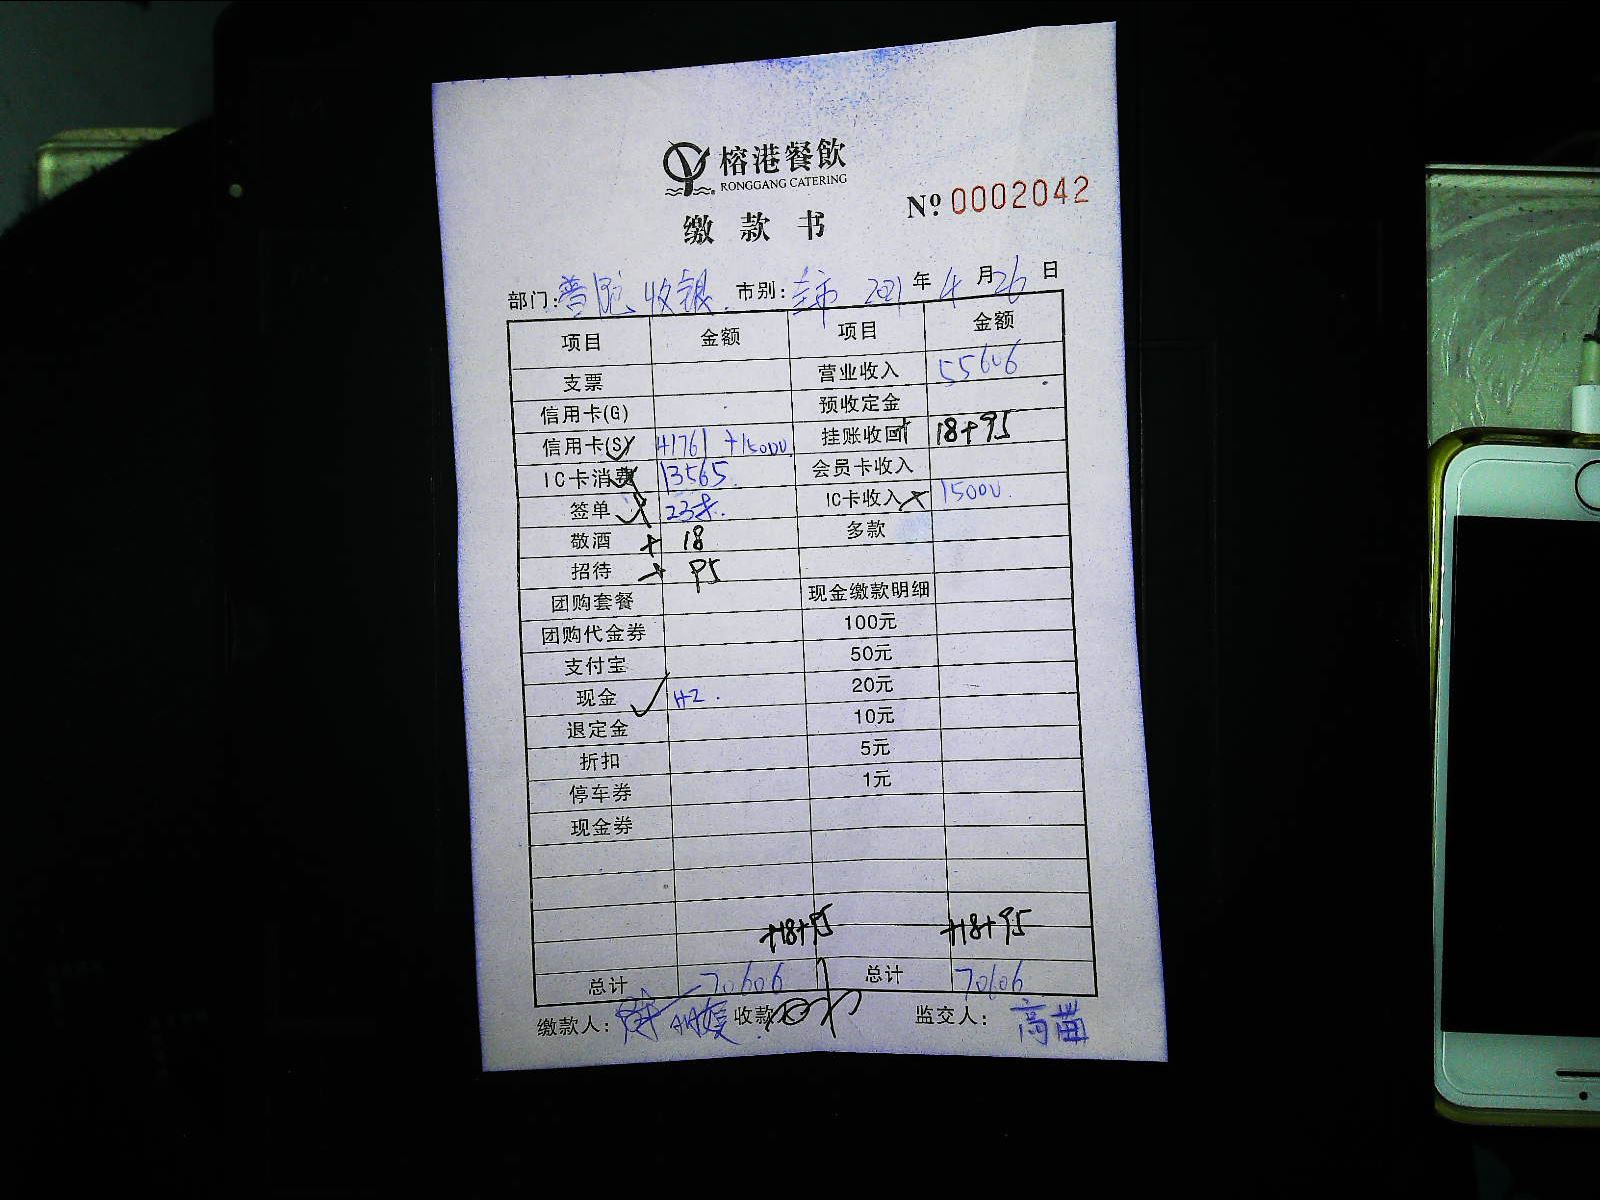 榕港餐飲
RONGGANG CATERING
缴款书
Nº 0002042
部门: 普陀收银 市别: 全市 2021年4月26日
项目 金额 项目 金额
支票 营业收入 55606
信用卡(G) 预收定金
信用卡(S) 41761 +15000 挂账收回 18+95
IC卡消费 13565 会员卡收入
签单 IC卡收入 15000
敬酒 + 18 多款
招待 + 95
团购套餐 现金缴款明细
团购代金券 100元
支付宝 50元
现金 42 20元
退定金 10元
折扣 5元
停车券 1元
现金券
+18+95 +18+95
总计 70606 总计 70606
缴款人: 收款 监交人: 高苗